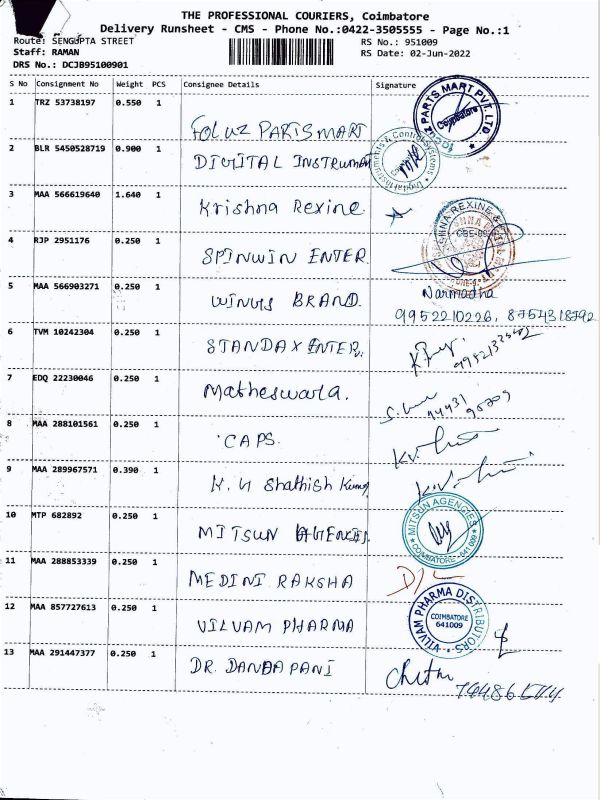 THE PROFESSIONAL COURIERS, Coimbatore
Delivery Runsheet - CMS - Phone No.:0422-3505555 - Page No.:1
Route: SENGUPTA STREET RS No.: 951009
Staff: RAMAN RS Date: 02-Jun-2022
DRS No.: DCJB95100901
S No Consignment No Weight PCS Consignee Details Signature
1 TRZ 53738197 0.550 1 FOLUZ PARTSMART
2 BLR 5450528719 0.900 1 DIGITAL INSTRUMENT
3 MAA 566619640 1.640 1 Krishna Rexine
4 RJP 2951176 0.250 1 SPINWIN ENTER.
5 MAA 566903271 0.250 1 WINGS BRAND. Narmadha
9952210226, 8754318792
6 TVM 10242304 0.250 1 STANDAX ENTER.
7 EDQ 22230046 0.250 1 Matheswara.
8 MAA 288101561 0.250 1 CAPS.
9 MAA 289967571 0.390 1 K. N Shathish Kumar
10 MTP 682892 0.250 1 MITSUN AGENCIES. MITSUN AGENCIES COIMBATORE - 641 009
11 MAA 288853339 0.250 1 MEDINI RAKSHA
12 MAA 857727613 0.250 1 VILVAM PHARMA VILVAM PHARMA DISTRIBUTORS COIMBATORE 641009
13 MAA 291447377 0.250 1 DR. DANDAPANI